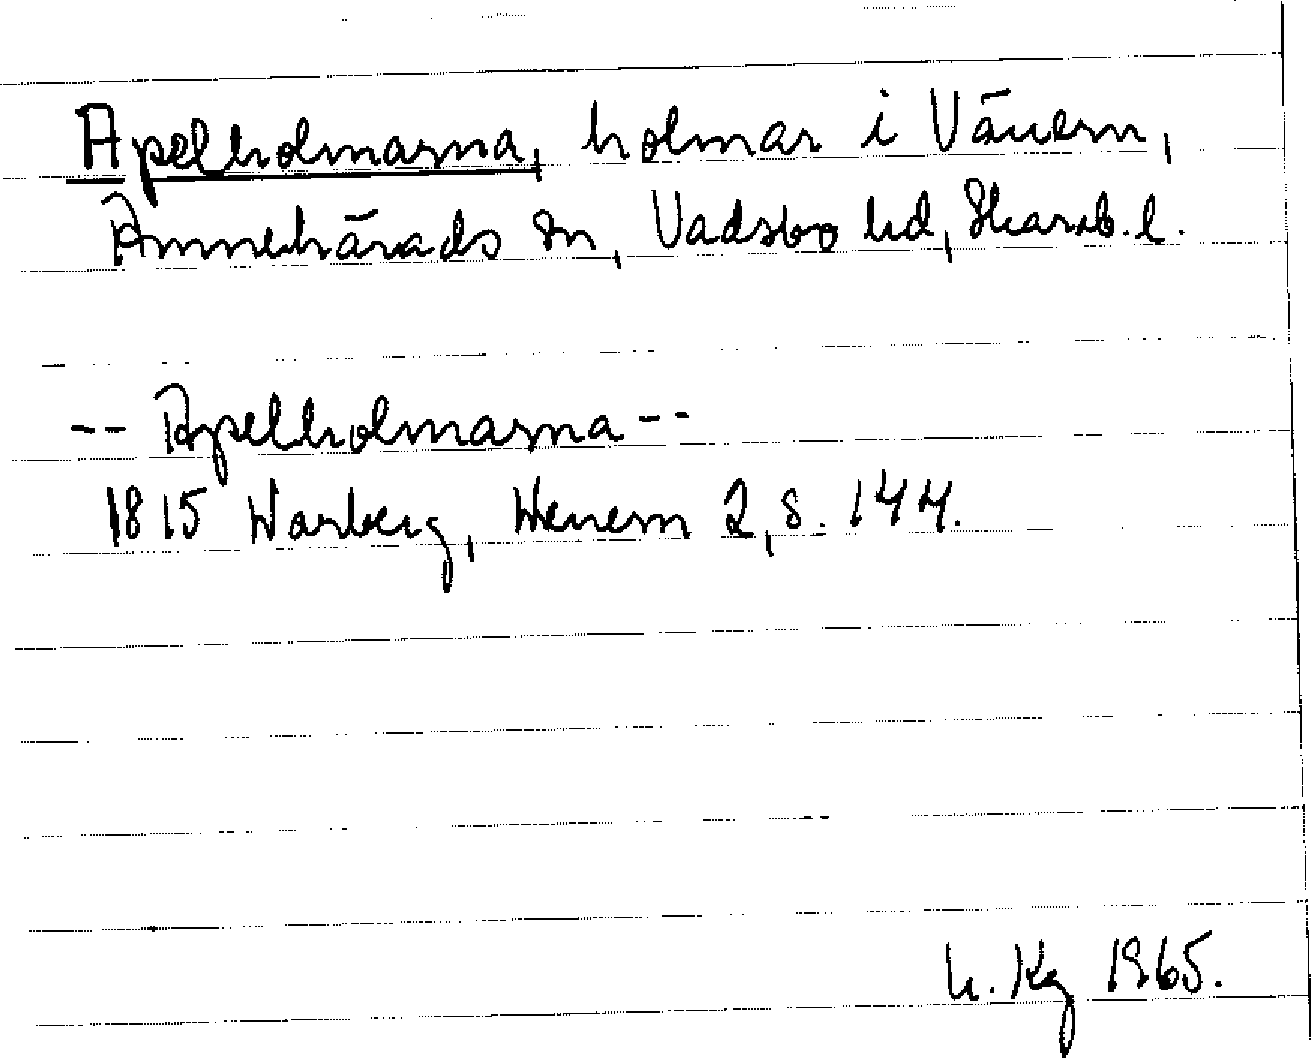 Apelholmarna, holmar i Vänern,
Amnehärads sn, Vadsbo hd, Skarab. l.
-- Apelholmarna --
1815 Warberg, Wenern 2, s. 144.
h. Kg 1965.